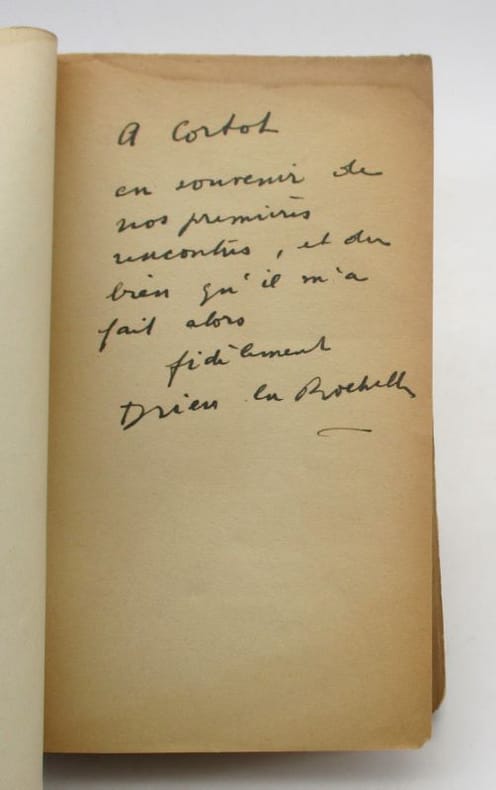 A Cortot
en souvenir de
nos premières
rencontres, et du
bien qu'il m'a
fait alors
fidèlement
Drieu la Rochelle